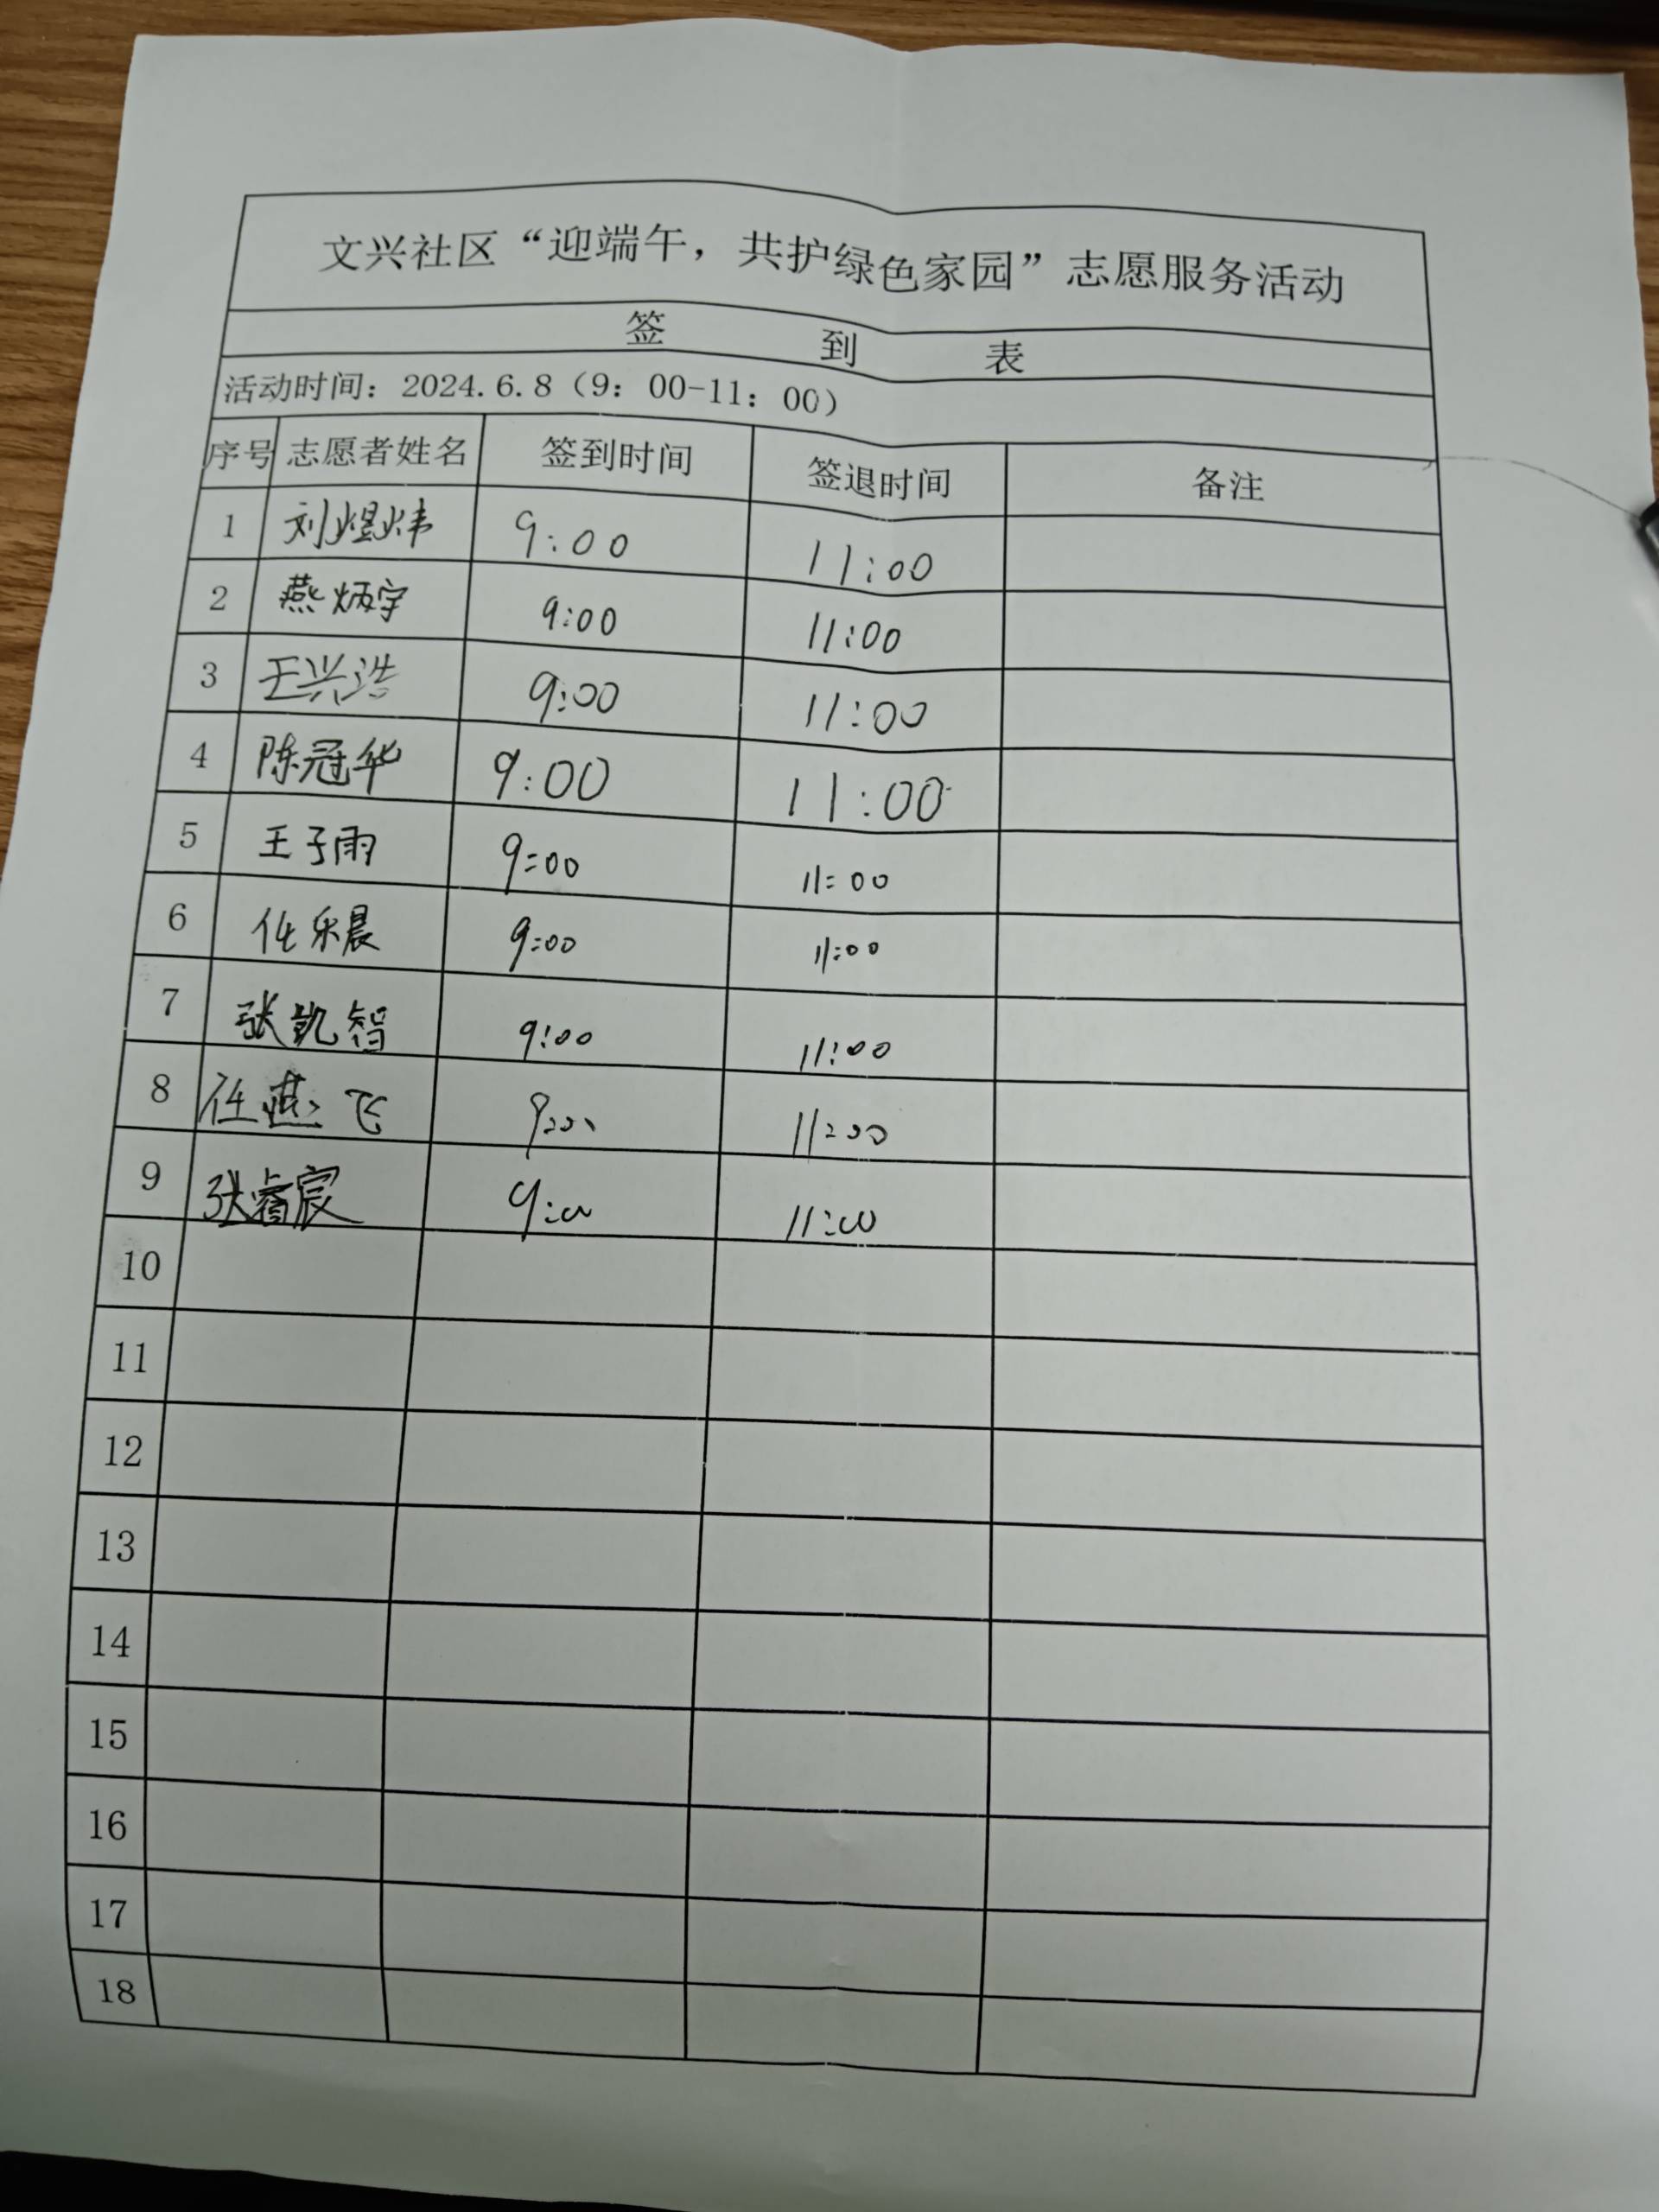 文兴社区“迎端午，共护绿色家园”志愿服务活动
签 到 表
活动时间：2024.6.8（9：00-11：00）
序号 志愿者姓名 签到时间 签退时间 备注
1 刘煜炜 9:00 11:00
2 燕炳宇 9:00 11:00
3 王兴浩 9:00 11:00
4 陈冠华 9:00 11:00
5 王子雨 9:00 11:00
6 任乐晨 9:00 11:00
7 张凯智 9:00 11:00
8 任燕飞 9:00 11:00
9 张睿宸 9:00 11:00
10
11
12
13
14
15
16
17
18